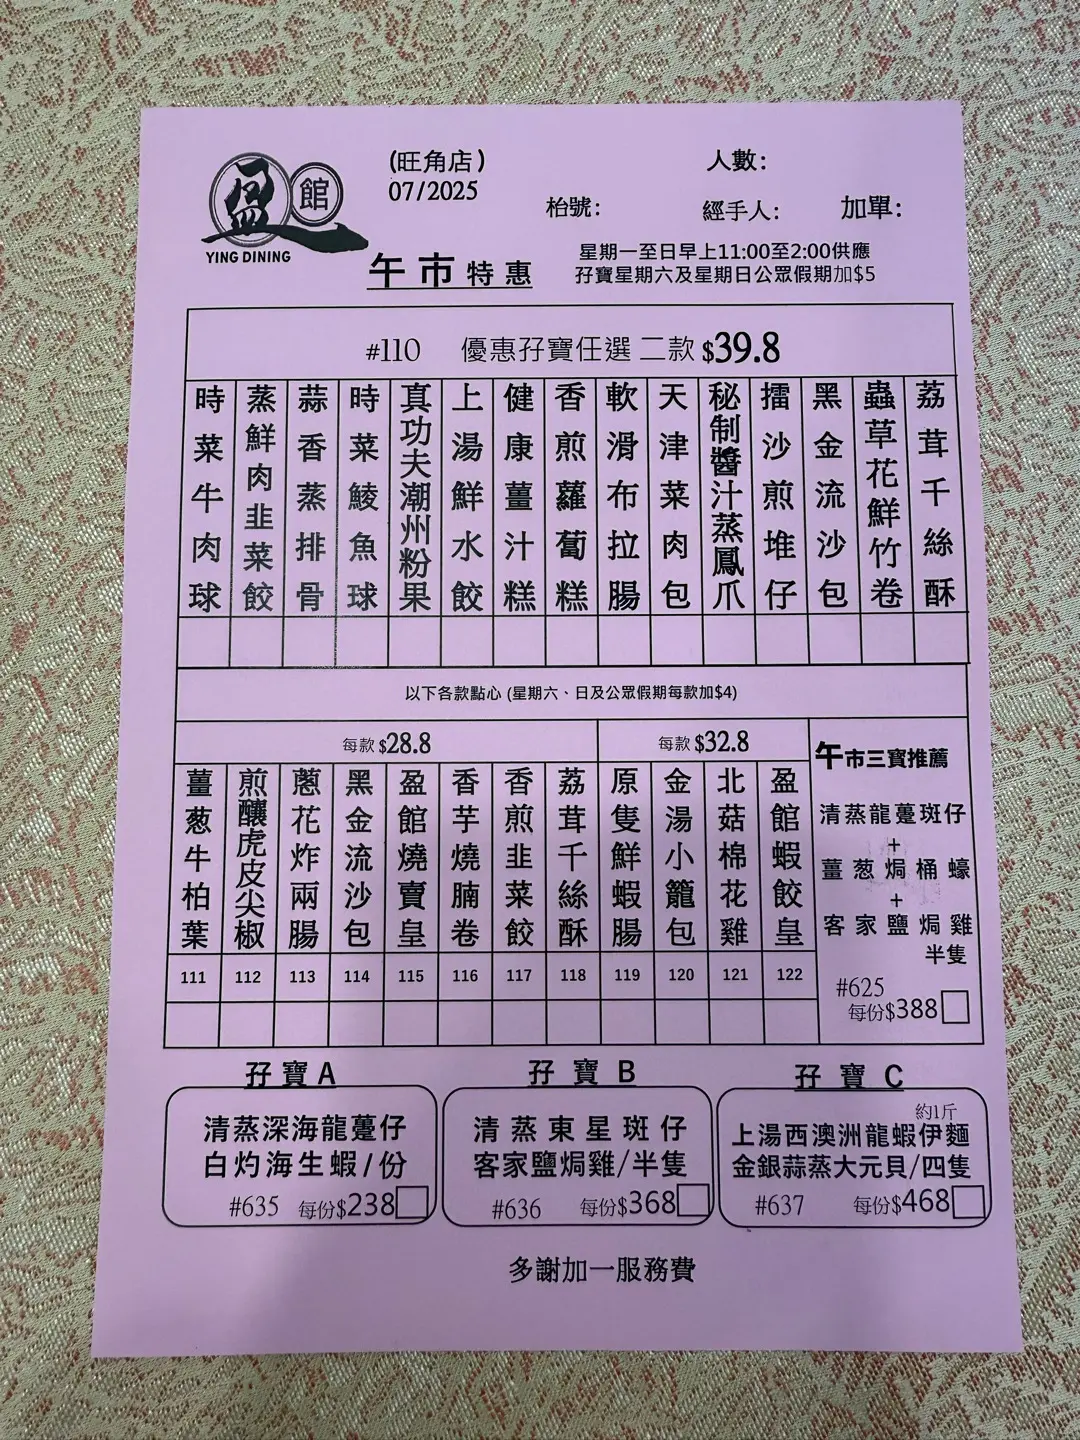 盈館
YING DINING
(旺角店)
07/2025
人數:
枱號:
經手人:
加單:
午市特惠
星期一至日早上11:00至2:00供應
孖寶星期六及星期日公眾假期加$5
#110 優惠孖寶任選二款 $39.8
時菜牛肉球
蒸鮮肉韭菜餃
蒜香蒸排骨
時菜鯪魚球
真功夫潮州粉果
上湯鮮水餃
健康薑汁糕
香煎蘿蔔糕
軟滑布拉腸
天津菜肉包
秘制醬汁蒸鳳爪
擂沙煎堆仔
黑金流沙包
蟲草花鮮竹卷
荔茸千絲酥
以下各款點心 (星期六、日及公眾假期每款加$4)
每款 $28.8
每款 $32.8
薑葱牛柏葉
煎釀虎皮尖椒
蔥花炸兩腸
黑金流沙包
盈館燒賣皇
香芋燒腩卷
香煎韭菜餃
荔茸千絲酥
原隻鮮蝦腸
金湯小籠包
北菇棉花雞
盈館蝦餃皇
111 112 113 114 115 116 117 118 119 120 121 122
午市三寶推薦
清蒸龍躉斑仔
+
薑葱焗桶蠔
+
客家鹽焗雞
半隻
#625
每份$388
孖寶A
清蒸深海龍躉仔
白灼海生蝦/份
#635 每份$238
孖寶 B
清蒸東星斑仔
客家鹽焗雞/半隻
#636 每份$368
孖寶 C
約1斤
上湯西澳洲龍蝦伊麵
金銀蒜蒸大元貝/四隻
#637 每份$468
多謝加一服務費